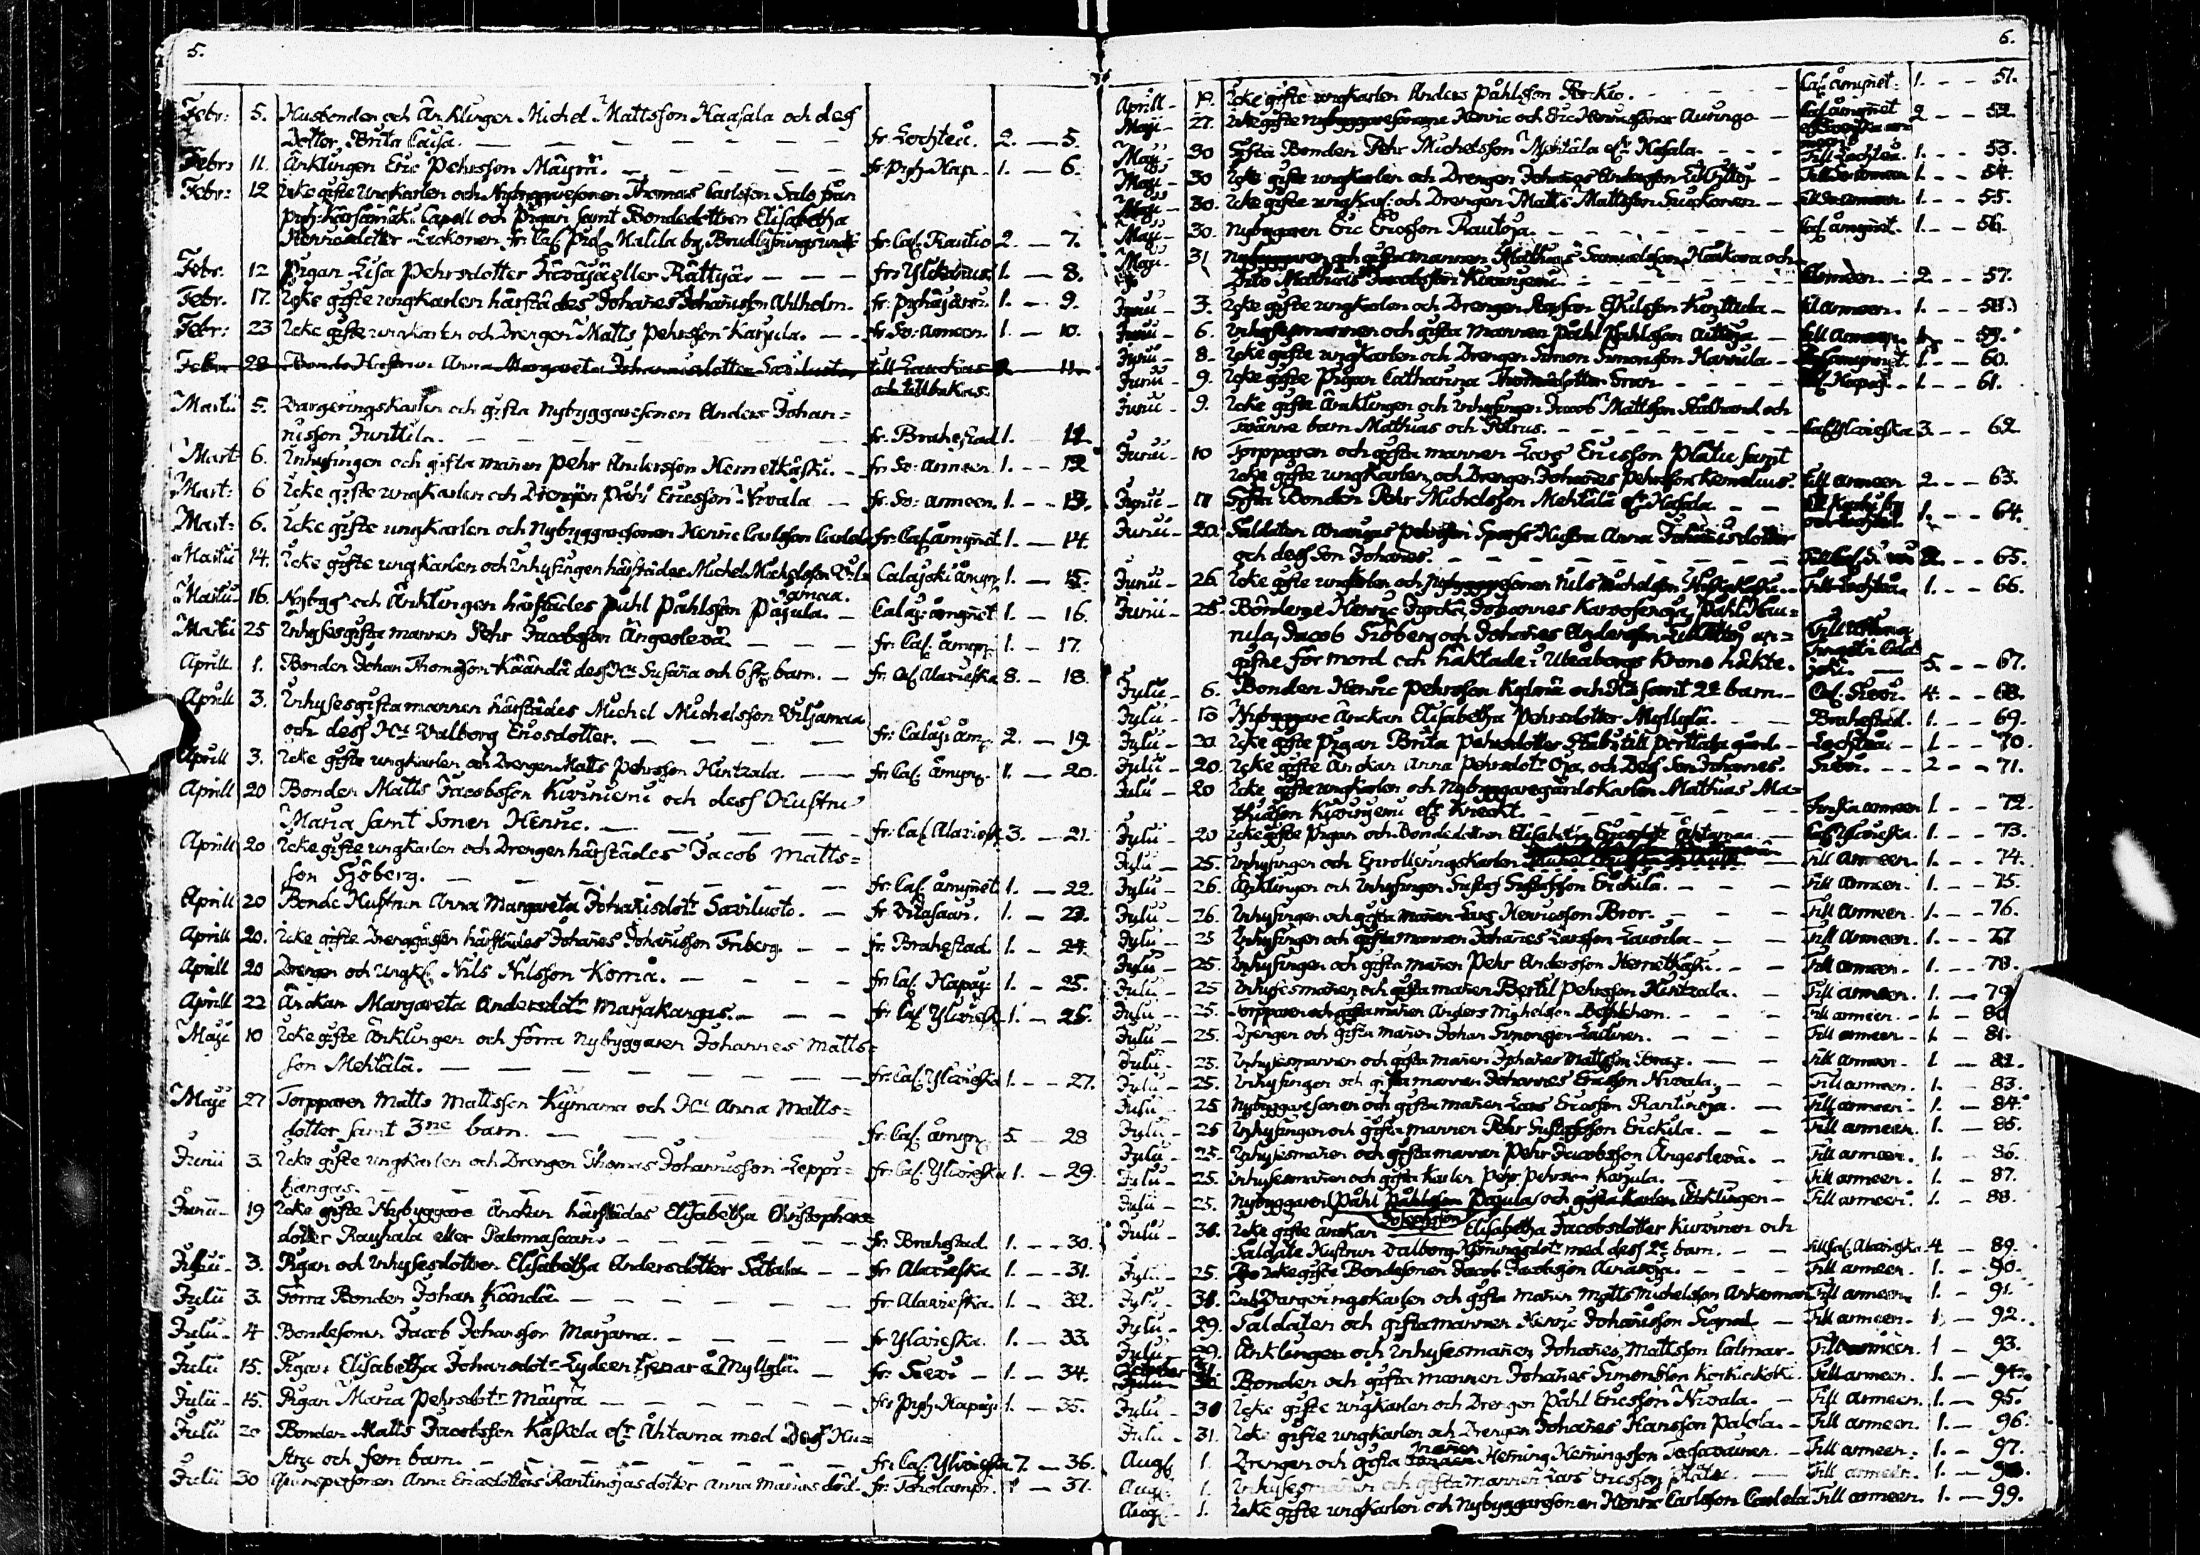 5.
Febr: 5. Husbonden och Änklingen Michel Mattsson Haasala och dess
Dotter Brita Caisa. fr. Lochteå. 2. — 5.
Febr: 11. Änklingen Eric Pehrsson Mäyrä. fr. Hap. 1. — 6.
Febr: 12 Icke gifte Ungkarlen och Nybyggaresonen Thomas Carlsson Salo från
Kärsämäki Capell och Pigan samt Bondedottren Elisabetha
Henricsdotter fr. Cap. Kalila by, fr. Cap. Rautio 2. — 7.
Febr. 12 Pigan Lisa Pehrsdotter eller Rättyä. fr. Ylivieska 1. — 8.
Febr. 17. Icke gifte ungkarlen härstädes Johañes Johañsson Ahlholm. 1. — 9.
Febr: 23 Icke gifte ungkarlen och Drengen Matts Pehrsson Karjula. fr. So: armeen. 1. — 10.
Febr. 28 Bonde Hustrun Anna Margareta Johannisdotter Saviluoto till
och tillbakas. 11.
Martii 5. Vargeringskarlen och gifta Nybyggaresonen Anders Johan=
nisson Junttila. fr. Brahestad 1. 11
Mart: 6. Inhysingen och gifta mañen Pehr Andersson Hernetkåski. fr. So: armeen 1. — 12
Mart: 6 Icke gifte ungkarlen och Drengen Påhl Ericsson Nivala fr. So: armeen. 1. — 13.
Mart: 6. Icke gifte ungkarlen och Nybyggaresonen Henric Carlsson Carlela fr. Cap. åmyñet 1. — 14.
Martii 14. Icke gifte ungkarlen och Inhysingen härstädes Michel Michelsson Vil=
jamaa. Calajoki åmyn. 1. — 15.
Martii 16. Nybygg. och Änklingen härstädes Påhl Påhlsson Pajula. Calaj. åmyñet 1. — 16.
Martii 25 Inhyses gifta mannen Pehr Jacobsson Ängeslevä fr. Cap. åmyn. 1. — 17.
Aprill 1. Bonden Johan Thomasson Käändä dess Hu Susaña och 6 st. barn. fr. Cap. Alavieska 8. — 18.
Aprill 3. Inhyses gifta mannen härstädes Michel Michelsson Viljamaa
och dess Hu Valborg Ericsdotter. fr. Calaj. åm. 2. — 19.
Aprill 3. Icke gifte ungkarlen och Drengen Matts Pehrsson Hintzala. fr. Cap. åmyn. 1. — 20.
Aprill 20 Bonden Matts Jacobsson Kiviniemi och dess Hustru
Maria samt Sonen Henric. fr. Cap. Alaviesk. 3. — 21.
Aprill 20 Icke gifte ungkarlen och Drengen härstädes Jacob Matts=
son Sjöberg. fr. Cap. åmyñet 1. — 22.
Aprill 20 Bonde Hustrun Anna Margareta Johañisdotr Saviluoto. fr. Vitasaari. 1. — 23.
Aprill 20. Icke gifte Drenggåssen härstädes Johañes Johañsson Friberg. fr. Brahestad. 1. — 24.
Aprill 20 Drengen och Ungk. Nils Nilsson Korna. fr. Cap. Hapaj: 1. — 25.
Aprill 22 Änckan Margareta Andersdotr Marjakangas. fr. Cap. Yliviesk. 1. — 26.
Maji 10 Icke gifte Änklingen och förra Nybyggaren Johannes Matts=
son Mehtälä. fr. Cap. Ylivieska 1. — 27.
Maji 27 Torpparen Matts Mattsson Kijmama och Hu Anna Matts=
dotter samt 3ne barn. fr. Cap. åmyn. 5. — 28
Junii 3. Icke gifte ungkarlen och Drengen Thomas Johannisson Leppi=
kangas. fr. Cap. Ylivieska 1. — 29.
Junii 19 Icke gifte Nybyggare änckan härstädes Elisabetha Christophers
dotter Rauhala eller Palomasaari. fr. Brahestad. 1. — 30.
Julii 3. Pigan och Inhysesdottren Elisabetha Andersdotter Satala fr. Alavieska 1. — 31.
Julii 3. Förra Bonden Johan Kändä fr. Alavieska. 1. — 32.
Julii 4 Bondesonen Jacob Johansson Marjama. fr. Ylivieska. 1. — 33.
Julii 15. Pigan Elisabetha Johansdotr Lydeen tjenar å Myllylä. fr. Sievi 1. — 34.
Julii 15. Pigan Maria Pehrsdotr Mäyrä fr. Hapaj. 1. — 35.
Julii 20 Bonden Matts Jacobsson Kåskela elr Åhtama med Dess Hu=
stru och fem barn. fr. Cap. Ylivieska 7. — 36.
Julii 30 Qvinspersonen Anna Ericsdotters Rantinojas dotter Anna Marias död. fr. Toholampi. 1 — 37.
6.
Aprill 19. Icke gifte ungkarlen Anders Påhlsson Cap. åmyñet. 1. — 51.
Maji 27. Icke gifte Henric och Eric Henricssöner Auringo Cap. åmyñet 2 — 52.
Maji 30 Gifta Bonden Pehr Michelsson Mehtälä elr Hasala. Till Lochteå. 1. — 53.
Maji 30 Icke gifte ungkarlen och Drengen Johañes Andersson 1. — 54.
Maji 30. Icke gifte ungkarl. och Drengen Matts Mattsson 1. — 55.
Maji 30. Nybyggaren Eric Ericsson Rautoja. Cap. åmyñet. 1. — 56.
Maji 31 Nybyggaren och gifta mannen Mathias Samuelsson och
Dito Mathias Jacobsson Kiviniemi. Armeen. 2 — 57.
Junii 3. Icke gifte ungkarlen och Drengen till Armeen. 1. — 58.
Junii 6. Inhysesmannen och gifta mannen Påhl Påhlsson till Armeen 1. — 59.
Junii 8. Icke gifte ungkarlen och Drengen Simon Simonsson 1. — 60.
Junii 9. Icke gifte Pigan Catharina Thomasdotter Hapaj. 1. — 61.
Junii 9. Icke gifte Änklingen och Inhysingen Jacob Mattsson Stålhand och
Tvänne barn Mathias och Petrus. Cap. Ylivieska 3. — 62
Junii 10 Torpparen och gifta mannen Lars Ericsson Plätu samt
Icke gifte ungkarlen, och Drengen Johañes Pehrsson Till armeen 2. — 63.
Junii 17 Gifta Bonden Pehr Michelsson Mehtälä elr Hasala 1. — 64.
Junii 20. Saldaten Pehrsson Hustru Anna Johañisdotter
och dess Son Johañes. 2. — 65.
Junii 26. Icke gifte ungkarlen och Nybyggaresonen Nils Michelsson Till Lochteå. 1. — 66.
Junii 28 Bönderne Henric Johannes Karvosenoja, Påhl Hau=
nila, Jacob Sjöberg och Johañes Andersson an=
gifne för mord och häktade i Uleåborgs Krono häkte. 5. — 67.
Julii 6. Bonden Henric Pehrsson och Hu samt 2e barn. Cap. Sievi. 4. — 68.
Julii 10 Nybyggare Änckan Elisabetha Pehrsdotter Myllylä. Brahestad. 1. — 69.
Julii 20. Icke gifte Pigan Brita Pehrsdotter Lochteå. 1. — 70.
Julii 20. Icke gifte Änckan Anna Pehrsdotr Oja, och Dess Son Johannes. Sievi. 2 — 71.
Julii 20 Icke gifte ungkarlen och Nybyggaregårdskarlen Mathias Ma=
thiasson Kiviniemi elr Knecht. Finska armeen 1. — 72.
Julii 20 Icke gifte Pigan och Bondedottren Elisabetha Ericsdotr Åhtama Cap. Ylivieska. 1. — 73.
Julii 25. Inhysingen och Enrolleringskarlen Till Armeen. 1. — 74.
Julii 26. Änklingen och Inhysingen Gustaf Gustafsson Erickilä. Till Armeen. 1. — 75.
Julii 26. Inhysingen och gifta mañen Lars Henricsson Bror. Till Armeen. 1. — 76.
Julii 25 Inhysingen och gifta mannen Johañes Larsson Laurila. Till Armeen. 1. — 77
Julii 25. Inhysingen och gifta mañen Pehr Andersson Hernetkåski. Till Armeen. 1. — 78.
Julii 25 Inhysesmañen och gifta mañen Bertil Pehrsson Hintzala. Till armeen. 1. — 79
Julii 25. Torpparen och gifta mañen Anders Michelsson Bethlehem. Till armeen. 1 — 80
Julii 25. Drengen och gifta mañen Johan Simonsson Laitinen. Till armeen. 1 — 81.
Julii 25. Inhysesmannen och gifta mañen Johañes Mattsson Brax. Till Armeen. 1 — 82.
Julii 25. Inhysingen och gifta mannen Johannes Ericsson Nivala. Till armeen. 1. — 83.
Julii 25 Nybyggaresonen och gifta mañen Lars Ericsson Rantinoja. Till armeen. 1. — 84.
Julii 25 Inhysingen och gifta mannen Pehr Gustafsson Erickila. Till armeen. 1. — 85.
Julii 25. Inhysesmañen och gifta mannen Pehr Jacobsson Ängeslevä. Till armeen. 1. — 86.
Julii 25. Inhysesmañen och gifta Karlen Pehr Pehrsson Karjula. Till armeen. 1. — 87.
Julii 25. Nybyggaren Påhl Påhlsson Pajula och gifta karlen Änklingen Till armeen. 1. — 88.
Julii 31. Icke gifte änckan Elisabetha Jacobsdotter Kurvinen och
Saldate Hustrun Valborg Henningsdotr med dess 2e barn. Till Cap. Alavieska 4 — 89.
Julii 25. Icke gifte Bondesonen Jacob Jacobsson Till armeen. 1. — 90.
Julii 31. Vargeringskarlen och gifta mañen Matts Michelsson Ankerman Till armeen. 1 — 91.
Julii 29. Saldaten och gifta mannen Henric Johañisson Signal. Till armeen. 1 — 92.
Julii 29. Änklingen och Inhysesmañen Johañes Mattsson Calmar. Till armeen. 1 — 93.
Julii Bonden och gifta mannen Johañes Simonsson Till armeen. 1. — 94.
Julii 31 Icke gifte ungkarlen och Drengen Påhl Ericsson Nivala. Till Armeen. 1. — 95.
Julii 31. Icke gifte ungkarlen och Drengen Johañes Hansson Palola. Till armeen. 1. — 96.
Aug. 1. Drengen och gifta mañen Heñing Heñingsson Till armeen. 1. — 97.
Aug. 1. Inhysesmannen och gifta mannen Lars Ericsson Plätu. Till armeen. 1. — 98.
Aug. 1. Icke gifte ungkarlen och Nybyggaresonen Henric Carlsson Carlela Till armeen. 1. — 99.